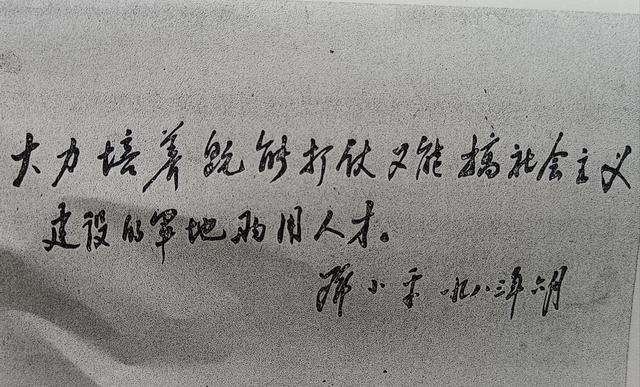 大力培养既能打仗又能搞社会主义
建设的军地两用人才。
邓小平 一九八三年六月